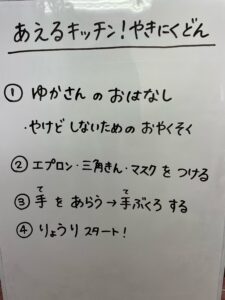 あえるキッチン！やきにくどん
① ゆかさんのおはなし
・やけどしないためのおやくそく
② エプロン・三角きん・マスクをつける
て　て
③ 手をあらう→手ぶくろする
④ りょうりスタート！